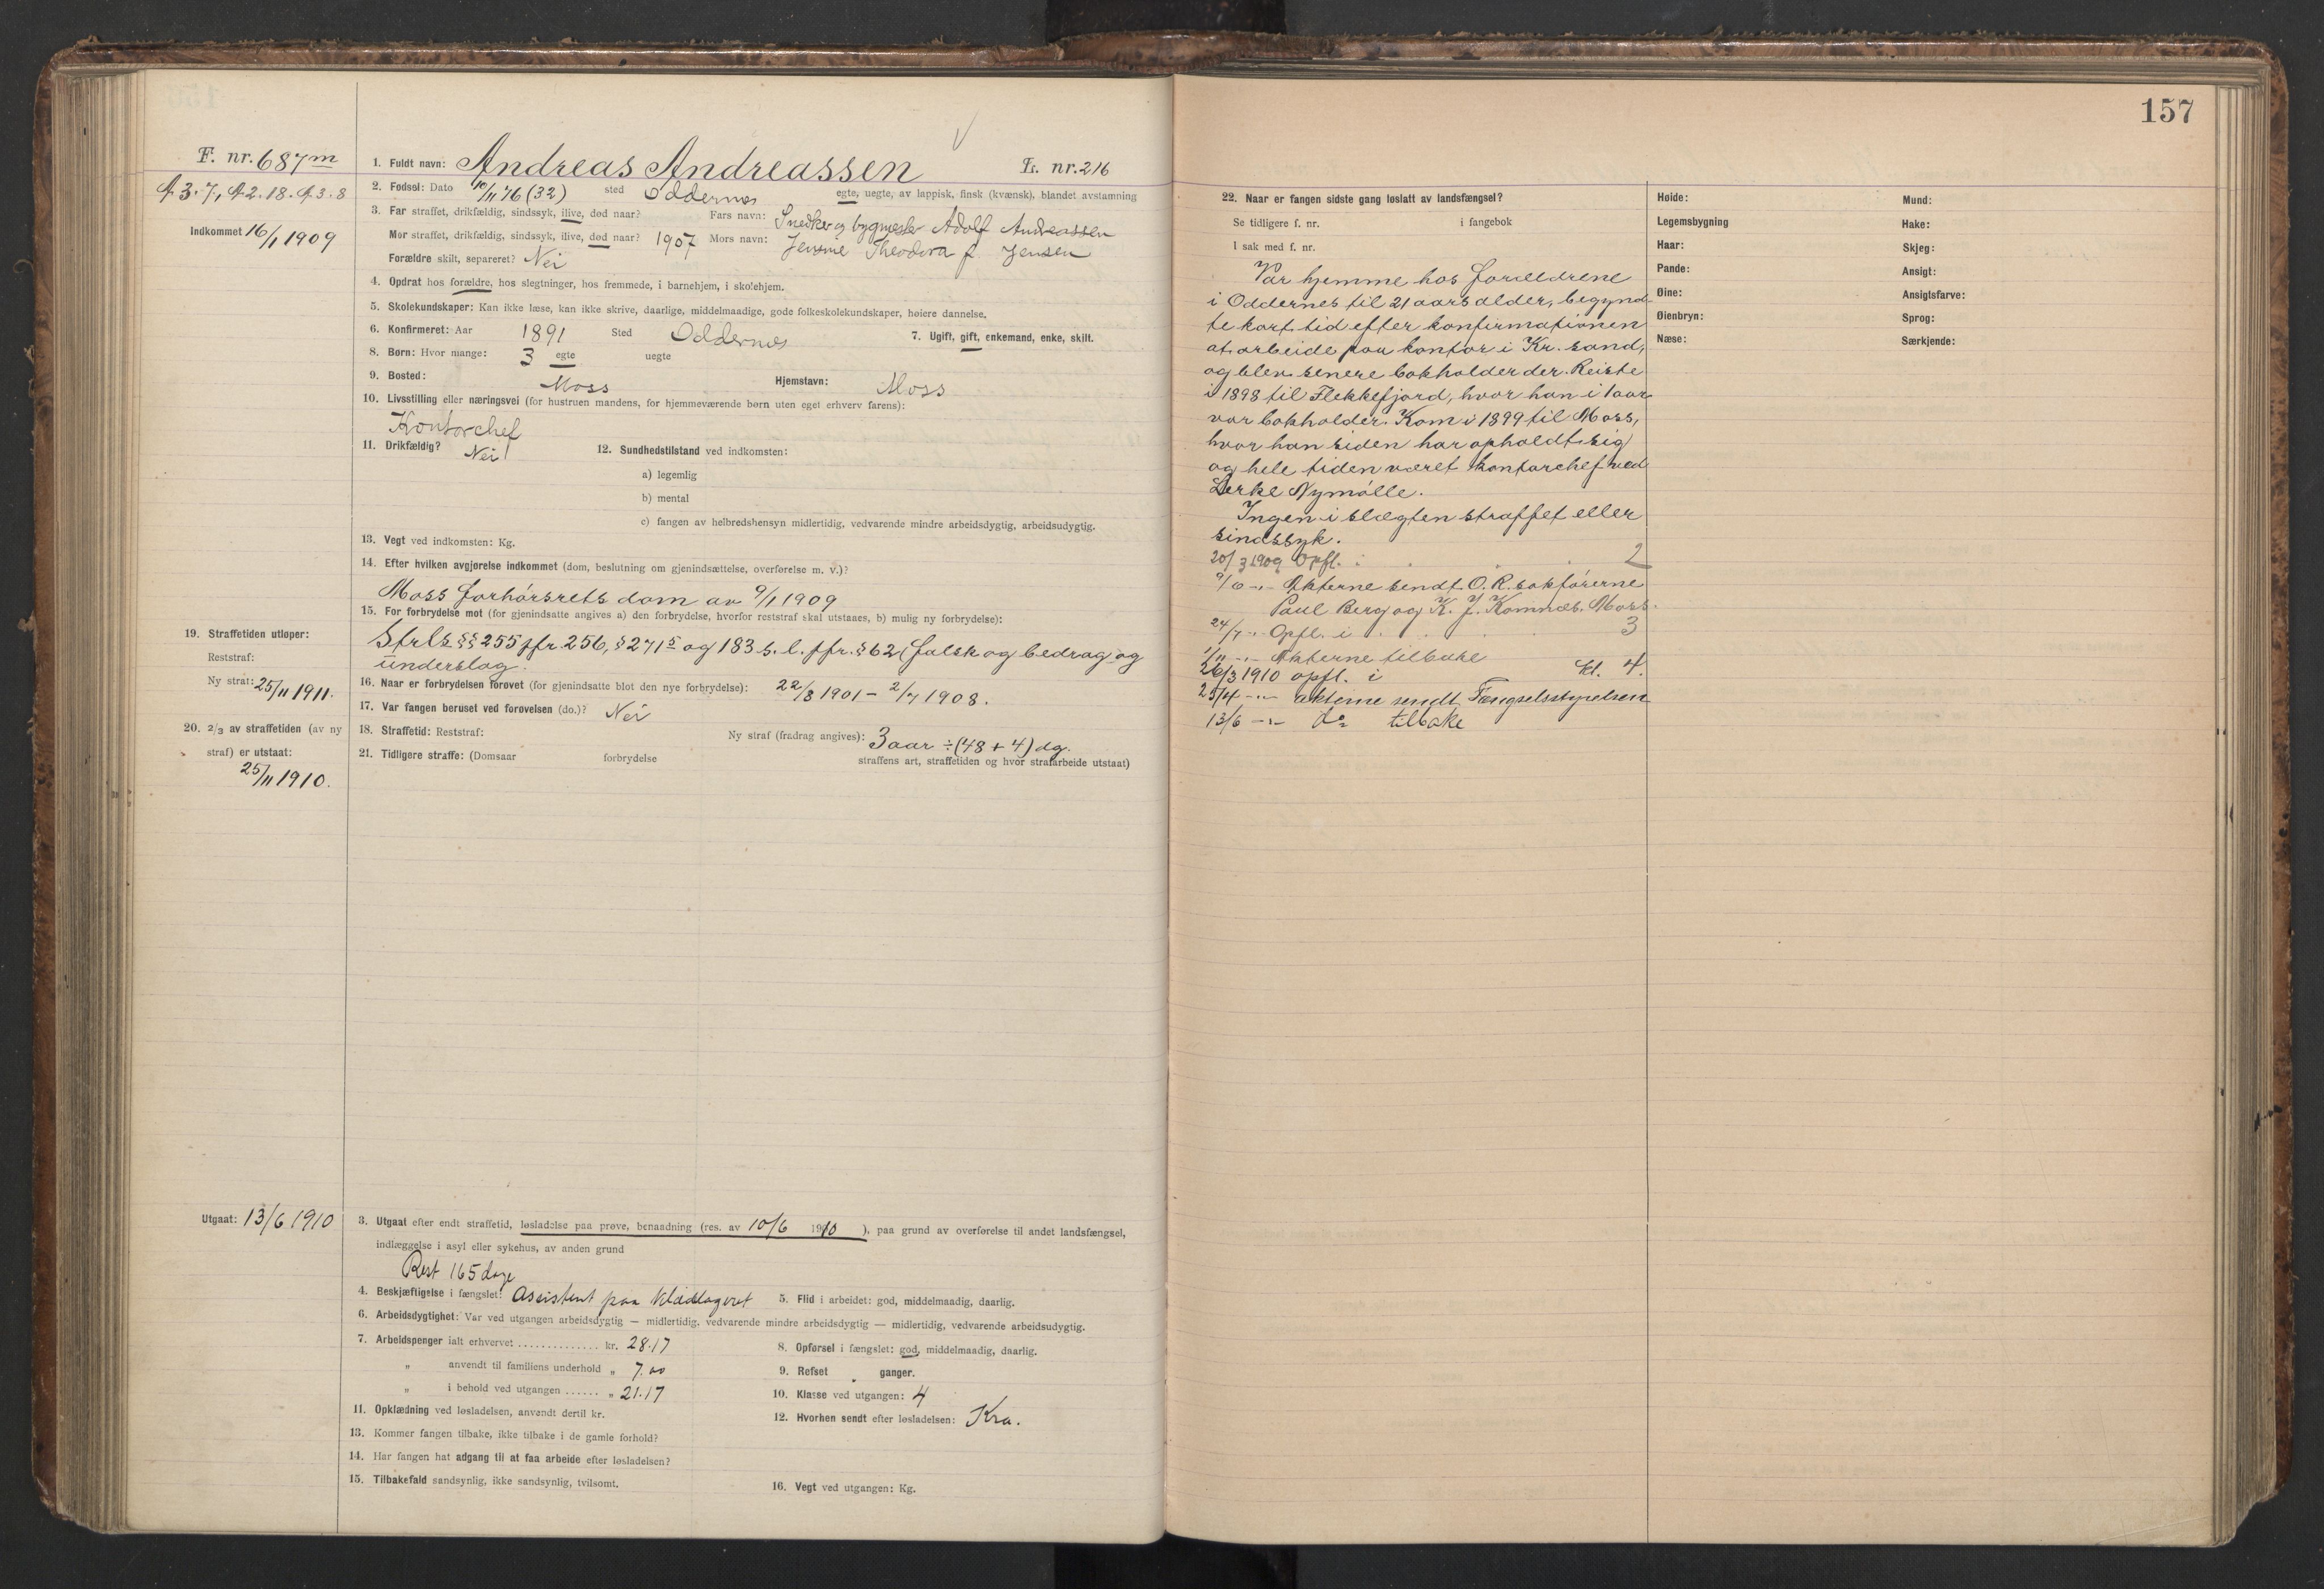 157
F. nr. 687m
A 3. 7, A 2. 18. A 3. 8
Indkommet 16/1 1909
1. Fuldt navn: Andreas Andreassen L. nr. 216
2. Fødsel: Dato 10/11 76 (32) sted Oddernes egte, uegte, av lappisk, finsk (kvænsk), blandet avstamning
3. Far straffet, drikfældig, sindssyk, ilive, død naar? Fars navn: Snedker og bygmester Adolf Andreassen
Mor straffet, drikfældig, sindssyk, ilive, død naar? 1907 Mors navn: Jensine Theodora f. Jensen
Forældre skilt, separeret? Nei
4. Opdrat hos forældre, hos slegtninger, hos fremmede, i barnehjem, i skolehjem.
5. Skolekundskaper: Kan ikke læse, kan ikke skrive, daarlige, middelmaadige, gode folkeskolekundskaper, høiere dannelse.
6. Konfirmeret: Aar 1891 Sted Oddernes 7. Ugift, gift, enkemand, enke, skilt.
8. Børn: Hvor mange: 3 egte uegte
9. Bosted: Moss Hjemstavn: Moss
10. Livsstilling eller næringsvei (for hustruen mandens, for hjemmeværende børn uten eget erhverv farens):
Kontorchef
11. Drikfældig? Nei 12. Sundhedstilstand ved indkomsten:
a) legemlig
b) mental
c) fangen av helbredshensyn midlertidig, vedvarende mindre arbeidsdygtig, arbeidsudygtig.
13. Vegt ved indkomsten: Kg.
14. Efter hvilken avgjørelse indkommet (dom, beslutning om gjenindsættelse, overførelse m. v.)?
Moss forhørsrets dom av 9/1 1909
15. For forbrydelse mot (for gjenindsatte angives a) den forbrydelse, hvorfor reststraf skal utstaaes, b) mulig ny forbrydelse):
Strls §§ 255 jfr. 256, § 271 5 og 183 s. l. jfr. § 62 (falsk og bedrag og
underslag.
16. Naar er forbrydelsen forøvet (for gjenindsatte blot den nye forbrydelse): 22/8 1901 – 2/7 1908.
17. Var fangen beruset ved forøvelsen (do.)? Nei
18. Straffetid: Reststraf: Ny straf (fradrag angives): 3 aar ÷ (48 + 4) dg.
21. Tidligere straffe: (Domsaar forbrydelse straffens art, straffetiden og hvor strafarbeide utstaat)
19. Straffetiden utløper:
Reststraf:
Ny straf: 25/11 1911.
20. 2/3 av straffetiden (av ny
straf) er utstaat:
25/11 1910.
Utgaat: 13/6 1910
3. Utgaat efter endt straffetid, løsladelse paa prøve, benaadning (res. av 10/6 1910), paa grund av overførelse til andet landsfængsel,
indlæggelse i asyl eller sykehus, av anden grund
Rest 165 dage
4. Beskjæftigelse i fængslet: Assistent paa klædlageret 5. Flid i arbeidet: god, middelmaadig, daarlig.
6. Arbeidsdygtighet: Var ved utgangen arbeidsdygtig — midlertidig, vedvarende mindre arbeidsdygtig — midlertidig, vedvarende arbeidsudygtig.
7. Arbeidspenger ialt erhvervet .............. kr. 28.17 8. Opførsel i fængslet: god, middelmaadig, daarlig.
" anvendt til familiens underhold " 7.00 9. Refset " ganger.
" i behold ved utgangen ...... " 21.17 10. Klasse ved utgangen: 4
11. Opklædning ved løsladelsen, anvendt dertil kr. 12. Hvorhen sendt efter løsladelsen: Kra.
13. Kommer fangen tilbake, ikke tilbake i de gamle forhold?
14. Har fangen hat adgang til at faa arbeide efter løsladelsen?
15. Tilbakefald sandsynlig, ikke sandsynlig, tvilsomt. 16. Vegt ved utgangen: Kg.
22. Naar er fangen sidste gang løslatt av landsfængsel?
Se tidligere f. nr. i fangebok
I sak med f. nr.
Var hjemme hos forældrene
i Oddernes til 21 aars alder, begynd-
te kort tid efter konfirmationen
at arbeide paa kontor i Kr. sand,
og blev senere bokholder der. Reiste
i 1898 til Flekkefjord, hvor han i 1 aar
var bokholder. Kom i 1899 til Moss,
hvor han siden har opholdt sig
og hele tiden været kontorchef ved
Lerke Nymølle.
Ingen i slægten straffet eller
sindssyk.
20/3 1909 Opfl. i . . . 2
9/6 -"- Akterne sendt O. R. sakførerne
Paul Berg og K. J. Komnæs. Moss.
24/7 -"- Opfl. i . . . 3
1/11 -"- Akterne tilbake
26/3 1910 opfl. i kl. 4.
25/4 -"- akterne sendt Fængselsstyrelsen
13/6 -"- do tilbake
Høide:
Legemsbygning
Haar:
Pande:
Øine:
Øienbryn:
Næse:
Mund:
Hake:
Skjeg:
Ansigt:
Ansigtsfarve:
Sprog:
Særkjende: